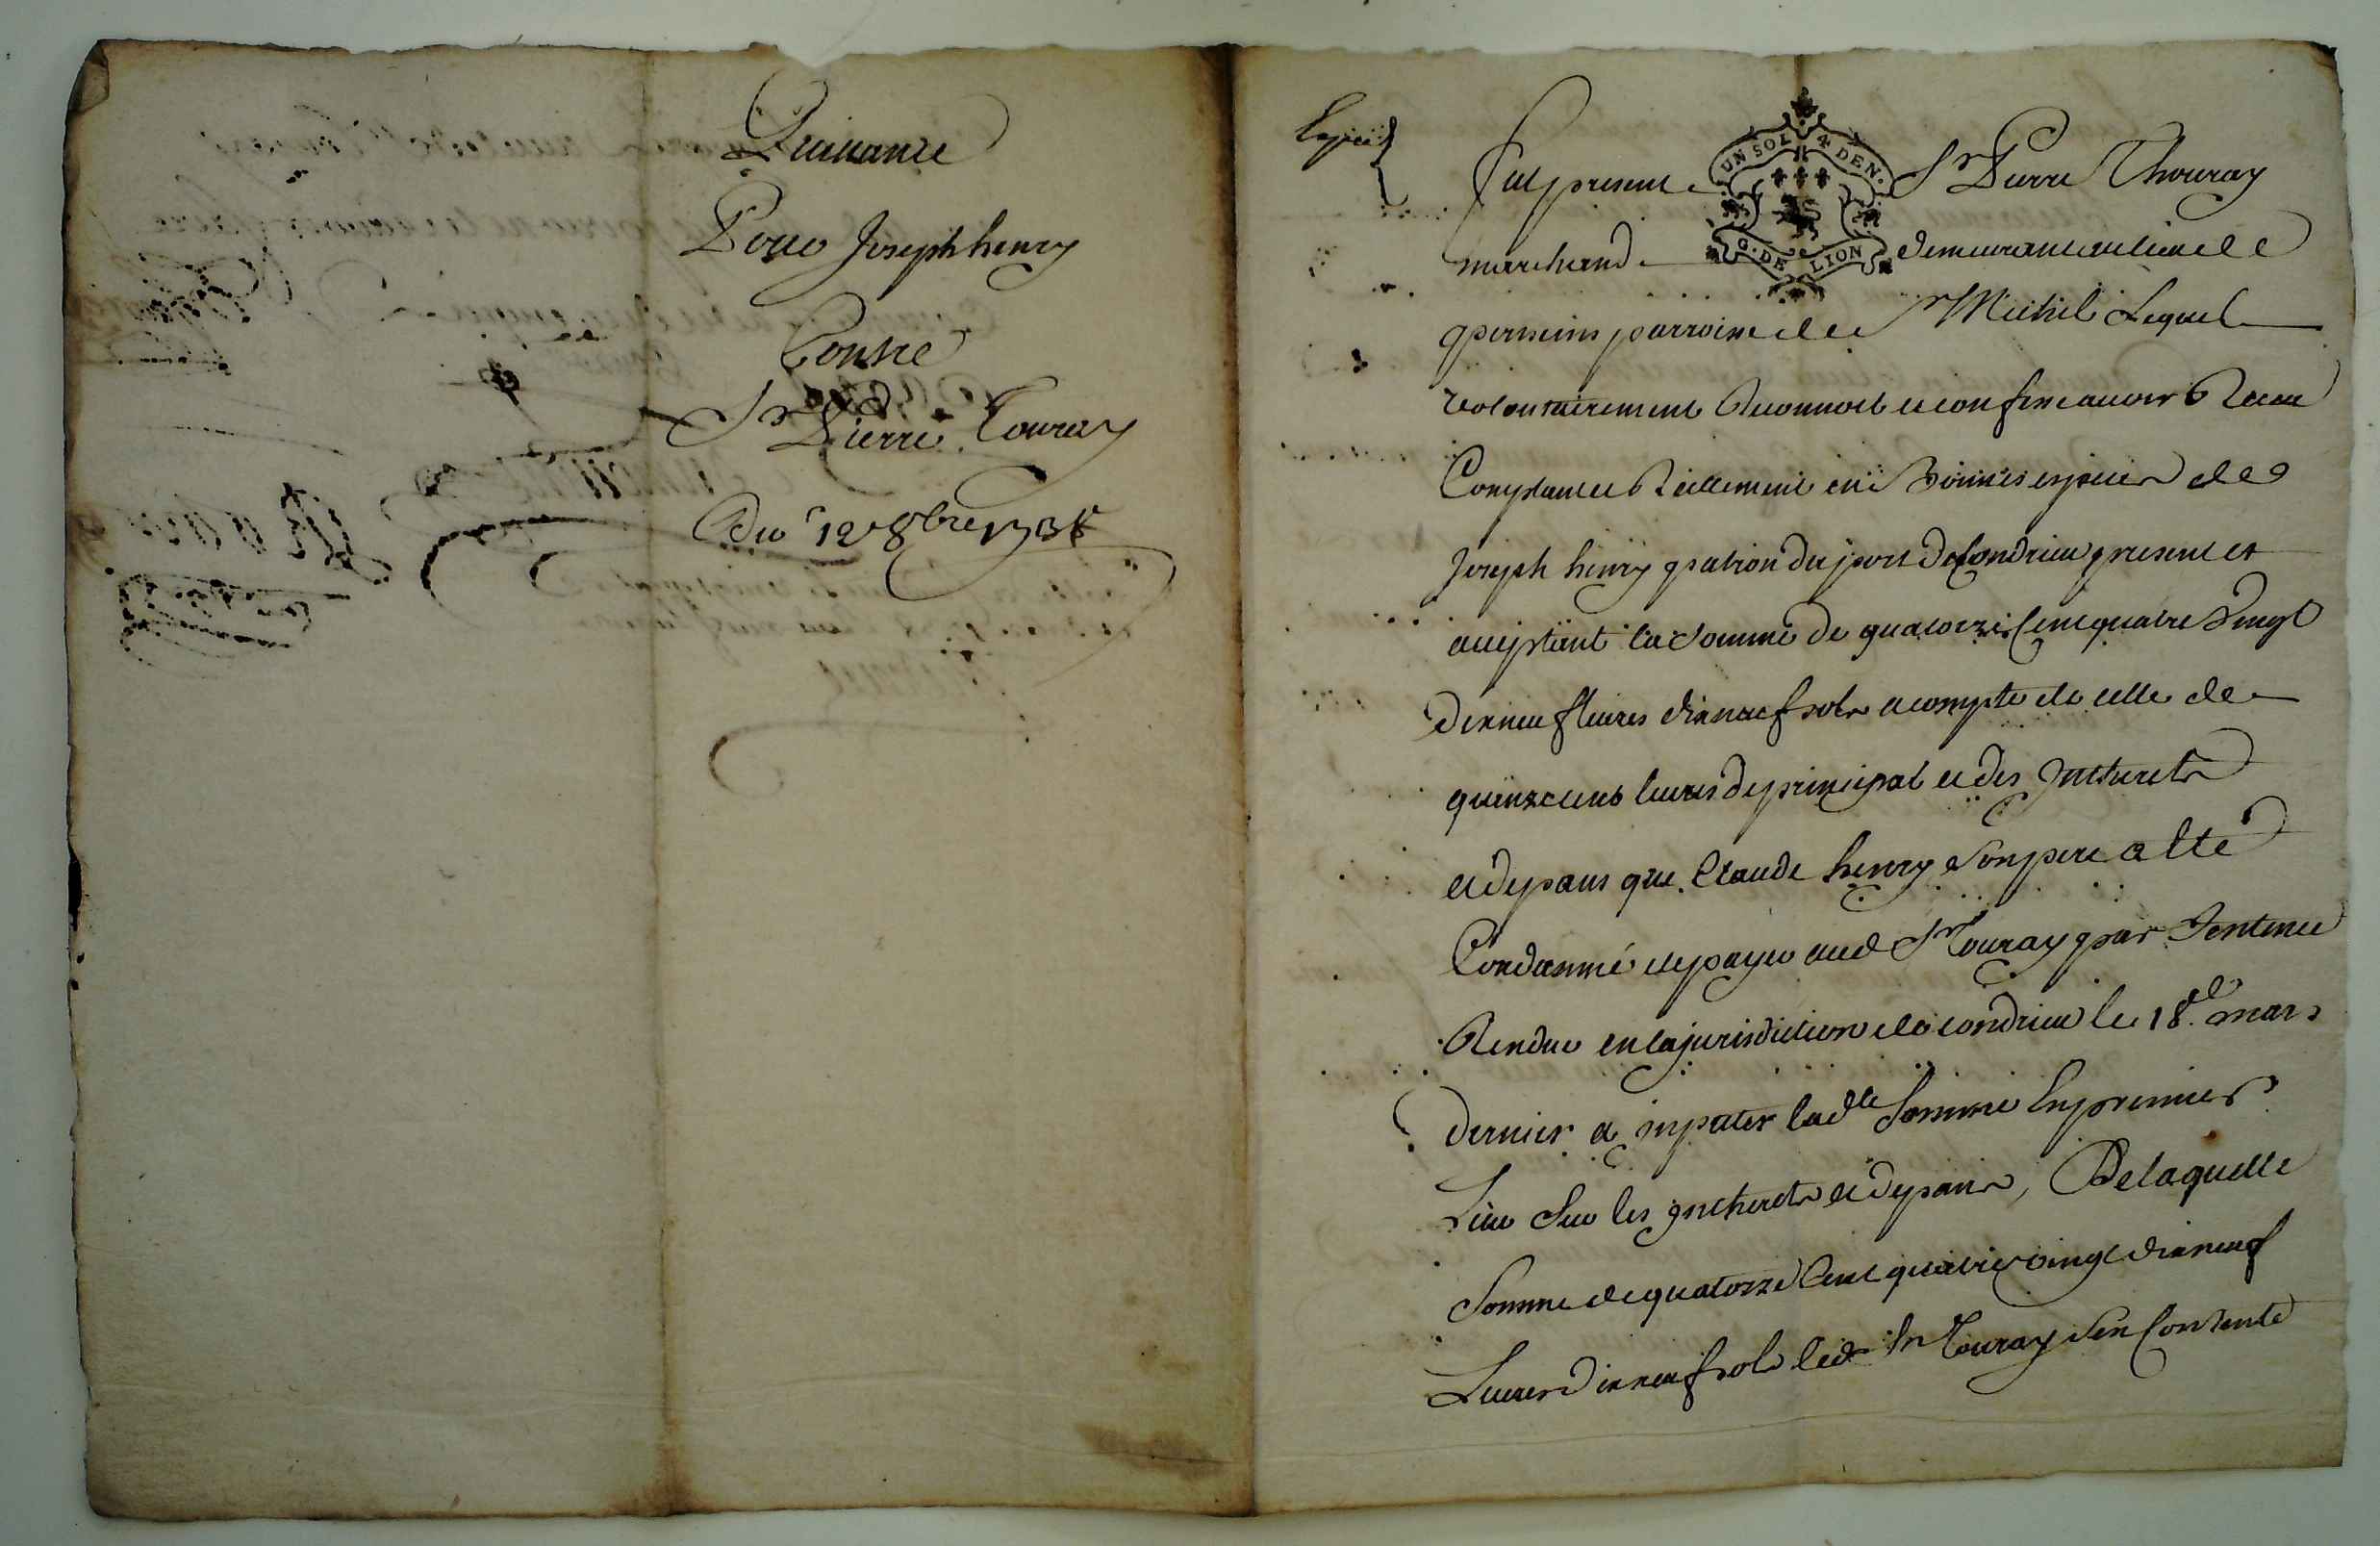 Quittance
Pour Joseph henry
Contre
Sr Pierre Touray
Du 12 8bre 173
UN SOL 4 DEN.
G. DE LION
Fut present Sr Pierre Thouray
marchand demeurant au lieu de
parroisse de St Michel Lequel
volontairement Reconnoit et confesse avoir Receu
Comptant et Réellement en Bonnes especes de
Joseph henry patron du port de Condrieu present et
acceptant la somme de quatorze Cent quatre Vingt
dixneuf livres dixneuf sols a compte de celle de
quinze cens livres de principal et des Intherets
et depans que Claude henry son pere a eté
Condamné de payer aud Sr Touray par Sentence
Rendue en la jurisdiction de condrieu le 18e mars
dernier a jmputer ladte Somme En premier
Lieu Sur les jntherets et depans, De laquelle
Somme de quatorze Cent quatre vingt dixneuf
Livres dixneuf sols led Sr Touray s'en Contente